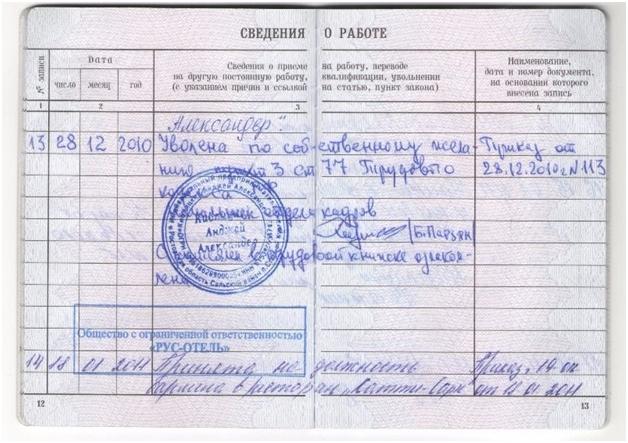 СВЕДЕНИЯ О РАБОТЕ
№ записи
Дата
число месяц год
Сведения о приеме на работу, переводе
на другую постоянную работу, квалификации, увольнении
(с указанием причин и ссылкой на статью, пункт закона)
Наименование,
дата и номер документа,
на основании которого
внесена запись
1 2 3 4
Александер".
13 28 12 2010 Уволена по собственному жела- Приказ от
нию, пункт 3 ст 77 Трудового 28.12.2010г N 113
кадров
Анджей
трудовой книжке
Общество с ограниченной ответственностью
«РУС-ОТЕЛЬ»
14 18 01 2011 Принята на должность Приказ
в ресторан от 18 01 2011
12 13